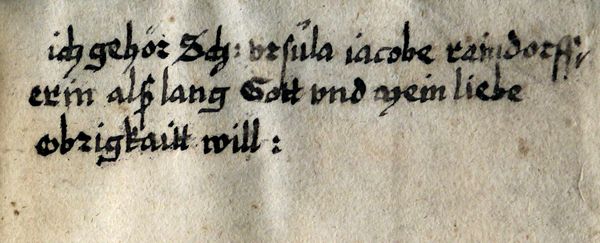 ich gehör Sch: vrsula iacobe raindorff,
erin alß lang Gott vnd mein liebe
obrigkaitt will: